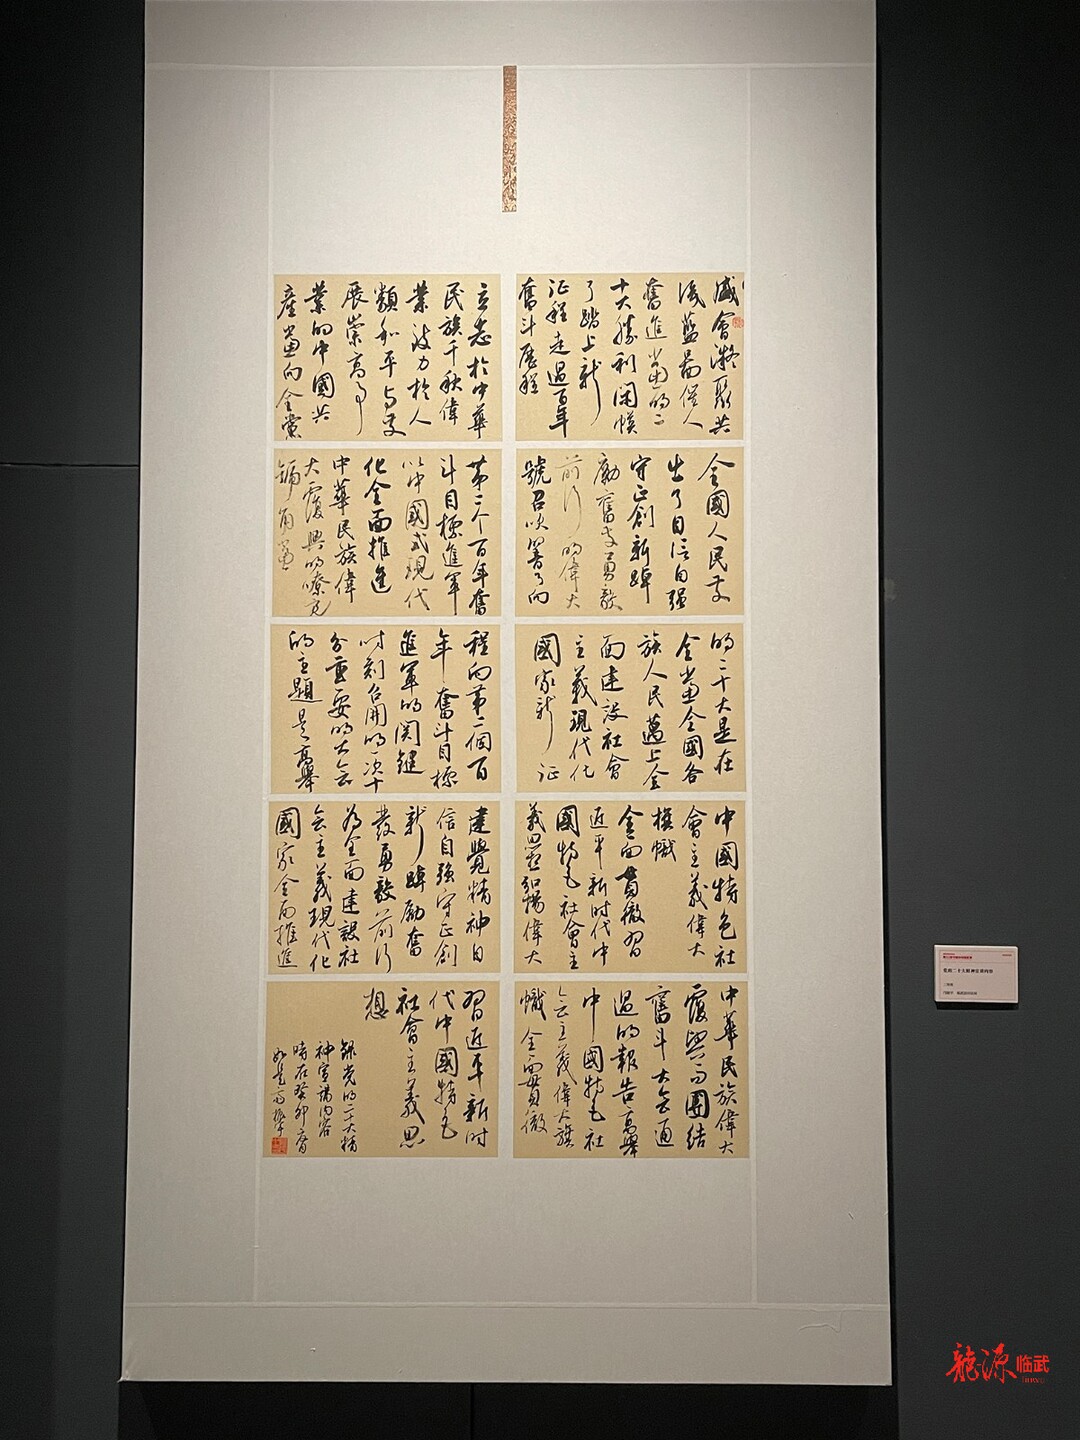 盛會凝聚共
識藍圖催人
奮進黨的二
十大勝利閉幕
了踏上新
征程走過百年
奮斗歷程
立志於中華
民族千秋偉
業致力於人
類和平与发
展崇高事
業的中國共
產黨向全黨
全國人民发
出了自信自强
守正創新踔
勵奮发勇毅
前行的偉大
號召吹響了向
第二个百年奮
斗目標進軍
以中國式現代
化全面推進
中華民族偉
大復興的嘹亮
號角黨
的二十大是在
全黨全國各
族人民邁上全
面建設社會
主義現代化
國家新征
程向第二個百
年奮斗目標
進軍的関鍵
时刻召開的一次十
分重要的大会
的主題是高舉
中國特色社
會主義偉大
旗幟
全面貫徹習
近平新时代中
國特色社會主
義思想弘揚偉大
建黨精神自
信自强守正創
新踔勵奮
發勇毅前行
為全面建設社
会主義現代化
國家全面推進
中華民族偉大
復興而團結
奮斗大会通
過的報告高舉
中國特色社
会主義偉大旗
幟全面貫徹
習近平新时
代中國特色
社會主義思
想
録党的二十大精
神宣講内容
時在癸卯
党的二十大精神宣讲内容
龍源 临武